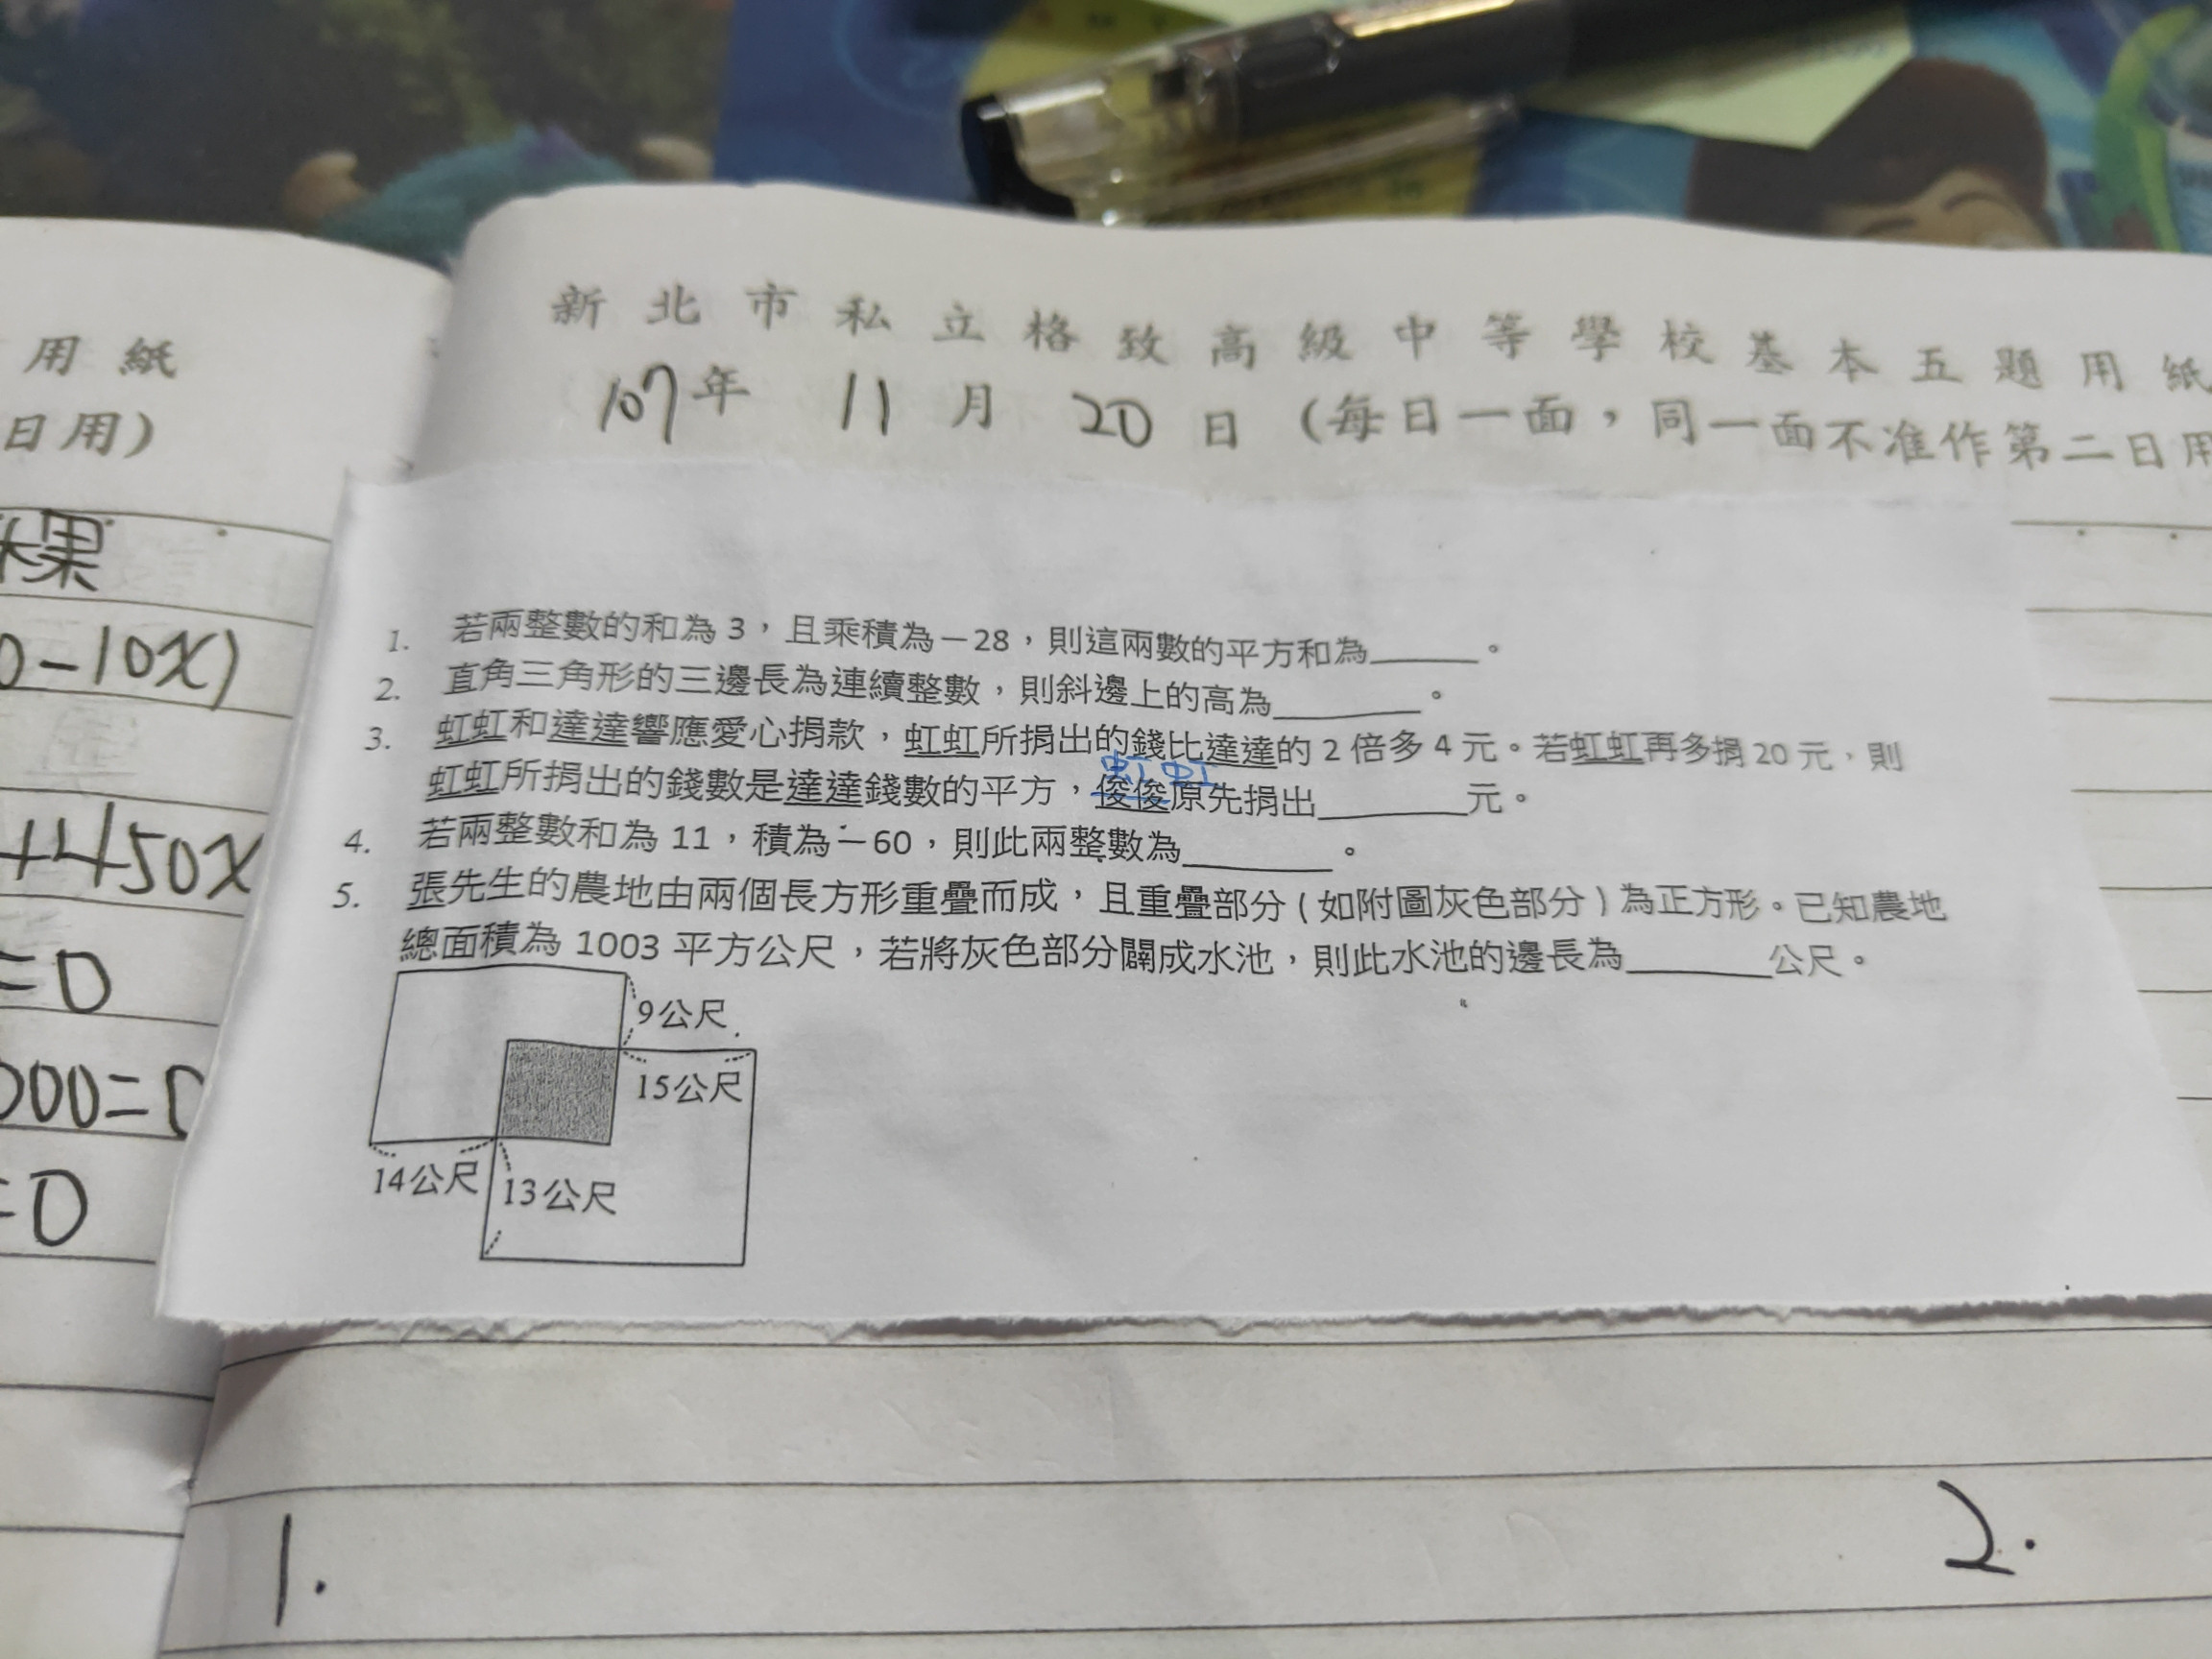 用紙
日用)
果
0-10x)
+450x
=0
000=0
=0
新北市私立格致高級中等學校基本五題用紙
107年 11月 20日 (每日一面，同一面不准作第二日用
1. 若兩整數的和為 3，且乘積為－28，則這兩數的平方和為______。
2. 直角三角形的三邊長為連續整數，則斜邊上的高為________。
3. 虹虹和達達響應愛心捐款，虹虹所捐出的錢比達達的 2 倍多 4 元。若虹虹再多捐 20 元，則
虹虹
虹虹所捐出的錢數是達達錢數的平方，俊俊原先捐出________元。
4. 若兩整數和為 11，積為－60，則此兩整數為________。
5. 張先生的農地由兩個長方形重疊而成，且重疊部分(如附圖灰色部分)為正方形。已知農地
總面積為 1003 平方公尺，若將灰色部分闢成水池，則此水池的邊長為________公尺。
9公尺
15公尺
14公尺
13公尺
1.
2.